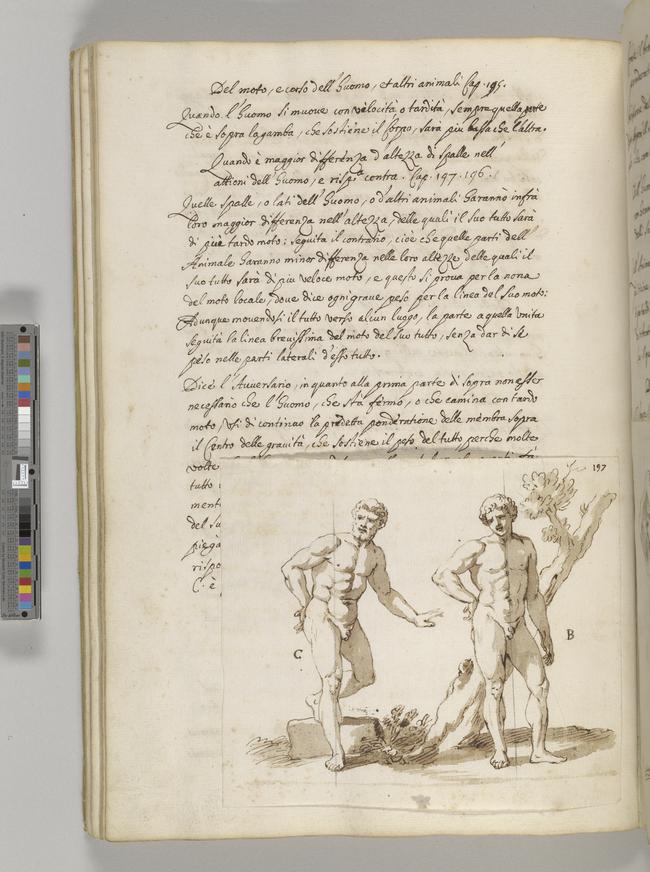 Del moto, e corso dell'huomo, et altri animali Cap. 195.
Quando l'huomo si muove con velocità o tardità, sempre quella parte
che è sopra la gamba, che sostiene il Corpo, sarà più bassa che l'altra.
Quando è maggior differenza d'altezza di spalle nell'
attioni dell'huomo, e contra. Cap. 197. 196.
Quelle spalle, o lati dell'huomo, o d'altri animali haranno infrà
loro maggior differenza nell'altezza, delle quali il suo tutto sarà
di più tardo moto: seguita il contrario, cioè che quelle parti dell'
Animale haranno minor differenza nelle loro altezze delle quali il
suo tutto sarà di più veloce moto, e questo si prova per la nona
del moto locale, dove dice ogni grave pesa per la linea del suo moto:
Adunque movendosi il tutto verso alcun luogo, la parte a quella unita
seguità la linea brevissima del moto del suo tutto, senza dar di sè
peso nelle parti laterali d'esso tutto.
Dice l'Avversario, in quanto alla prima parte di sopra non esser
necessario che l'huomo, che stà fermo, o che camina con tardo
moto, usi di continuo la predetta ponderatione delle membra sopra
il Centro delle gravità, che sostiene il peso del tutto perche molte
volte
tutto
ment
del su
piega
rispo
C. è
197
C
B